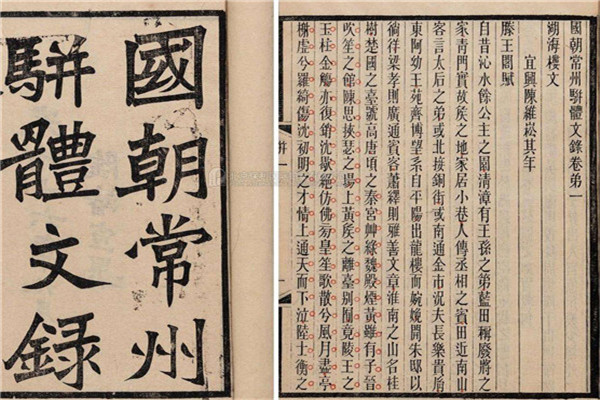 國朝常州
駢體文錄
國朝常州駢體文錄卷弟一
湖海樓文
宜興陳維崧其年
滕王閣賦
自昔沁水餘公主之園淸漳有王孫之第藍田稱廢將之
家靑門實故矦之地家居小巷人傳丞相之賓田近南山
客言太后之弟或北接銅街或南通金市況夫長樂貴
東阿幼王苑齊博望系出平陽出龍樓而婉嫕開朱邸以
徜徉梁孝則廣通賓客蕭繹則雅善文章淮南之山名桂
樹楚國之臺號高唐頃之秦宮艸綠魏殿煙黃雖有子晉
吹笙之館陳思挾瑟之場上黃矦之離臺別囿竟陵王之
玉柱金觴亦復銷沈歇絕仿佛芴皇笙歌散兮風月盡亭
榭虛兮羅綺傷沈初明之才情上通天而下泣陸士衡之